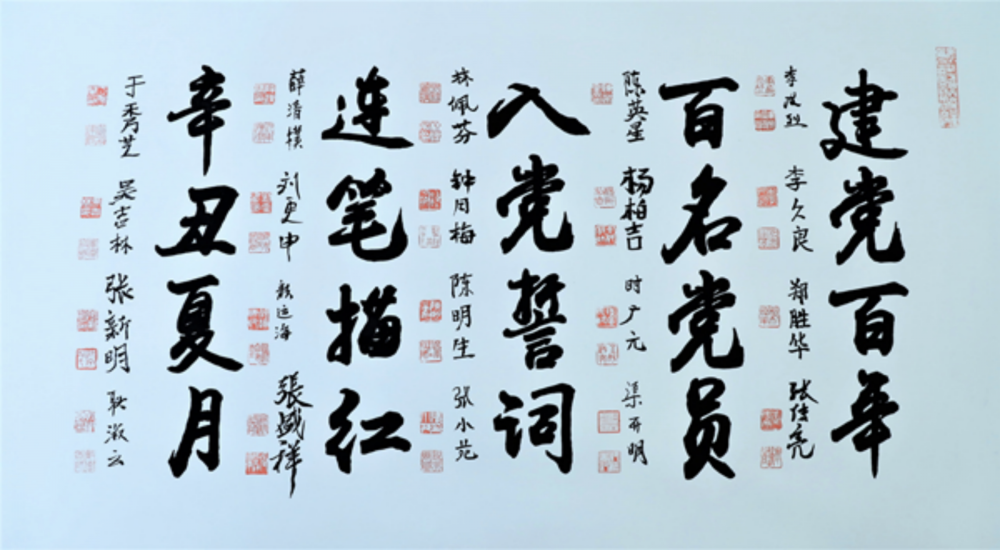 建党百年
李久良
郑胜华
张传亮
百名党员
陈英星
杨柏吉
时广元
渠开明
入党誓词
林佩芬
钟月梅
陈明生
张小苑
连笔描红
薛清朴
刘更申
张盛祥
辛丑夏月
于秀芝
吴吉林
张新明
耿淑云